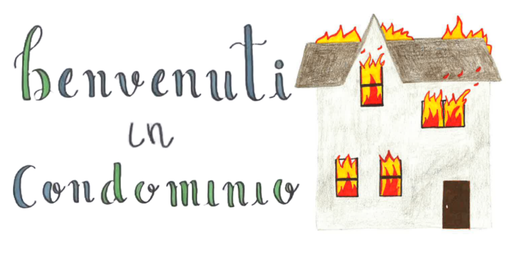 benvenuti
in
condominio